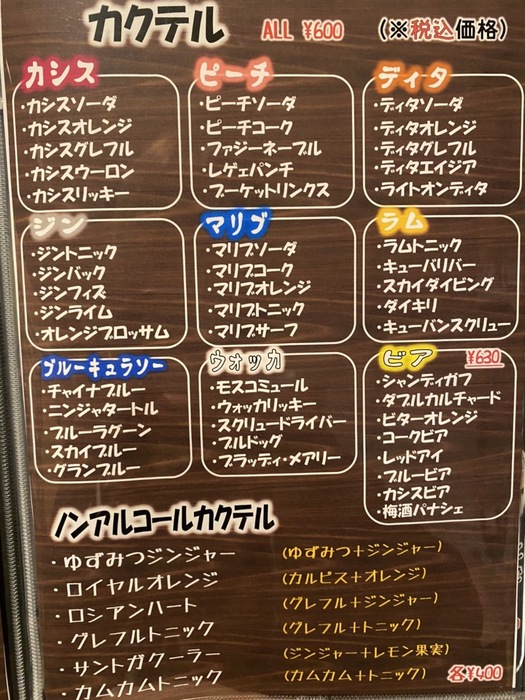 カクテル ALL ¥600 (※税込価格)
カシス
・カシスソーダ
・カシスオレンジ
・カシスグレフル
・カシスウーロン
・カシスリッキー
ピーチ
・ピーチソーダ
・ピーチコーク
・ファジーネーブル
・レゲェパンチ
・ブーケットリンクス
ディタ
・ディタソーダ
・ディタオレンジ
・ディタグレフル
・ディタエイジア
・ライトオンディタ
ジン
・ジントニック
・ジンバック
・ジンフィズ
・ジンライム
・オレンジブロッサム
マリブ
・マリブソーダ
・マリブコーク
・マリブオレンジ
・マリブトニック
・マリブサーフ
ラム
・ラムトニック
・キューバリバー
・スカイダイビング
・ダイキリ
・キューバンスクリュー
ブルーキュラソー
・チャイナブルー
・ニンジャタートル
・ブルーラグーン
・スカイブルー
・グランブルー
ウォッカ
・モスコミュール
・ウォッカリッキー
・スクリュードライバー
・ブルドッグ
・ブラッディ・メアリー
ビア ¥630
・シャンディガフ
・ダブルカルチャード
・ビターオレンジ
・コークビア
・レッドアイ
・ブルービア
・カシスビア
・梅酒パナシェ
ノンアルコールカクテル
・ゆずみつジンジャー (ゆずみつ+ジンジャー)
・ロイヤルオレンジ (カルピス+オレンジ)
・ロシアンハート (グレフル+ジンジャー)
・グレフルトニック (グレフル+トニック)
・サントガクーラー (ジンジャー+レモン果実)
・カムカムトニック (カムカム+トニック) 各¥400